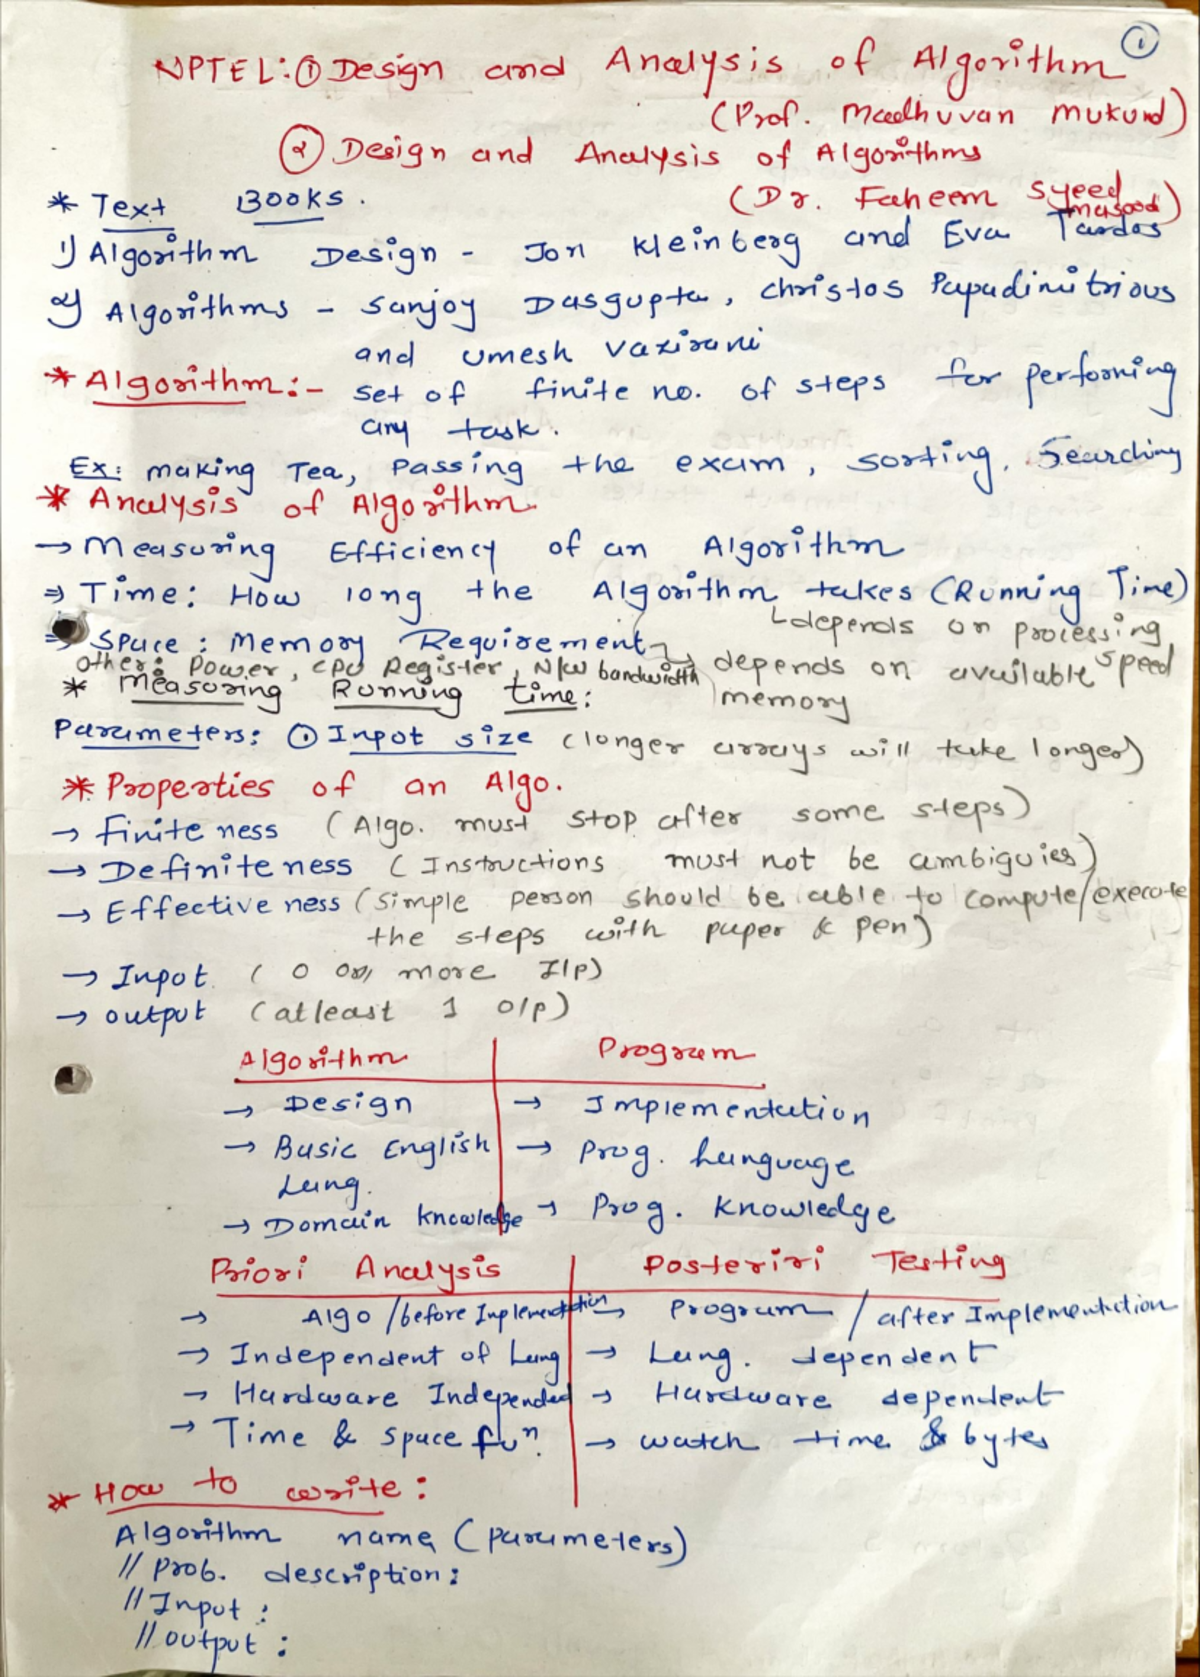 1
NPTEL: ① Design and Analysis of Algorithm
(Prof. Madhuvan Mukund)
② Design and Analysis of Algorithms
(Dr. Faheem Syeed Masood)
* Text Books.
1) Algorithm Design - Jon Kleinberg and Eva Tardos
2) Algorithms - Sanjoy Dasgupta, Christos Papadimitrious
and Umesh Vazirani
* Algorithm:- Set of finite no. of steps for performing
any task.
Ex: making Tea, Passing the exam, sorting, Searching
* Analysis of Algorithm
→ Measuring Efficiency of an Algorithm
⇒ Time: How long the Algorithm takes (Running Time)
↳depends on processing speed
⇒ Space: Memory Requirement → depends on available memory
Other: Power, CPU Register, N/W bandwidth
* Measuring Running time:
Parameters: ① Input size (longer arrays will take longer)
* Properties of an Algo.
→ Finiteness (Algo. must stop after some steps)
→ Definiteness (Instructions must not be ambiguies)
→ Effectiveness (Simple person should be able to compute/execute
the steps with paper & pen)
→ Input (0 or more I/p)
→ output (atleast 1 o/p)
Algorithm | Program
→ Design → Implementation
→ Basic English Lang. → Prog. Language
→ Domain knowledge → Prog. Knowledge
Priori Analysis | Posteriri Testing
→ Algo /before Inplementation → Program / after Implementation
→ Independent of Lang → Lang. dependent
→ Hardware Independed → Hardware dependent
→ Time & Space fun. → watch time & bytes
* How to write:
Algorithm name (parameters)
// Prob. description:
// Input:
// output: